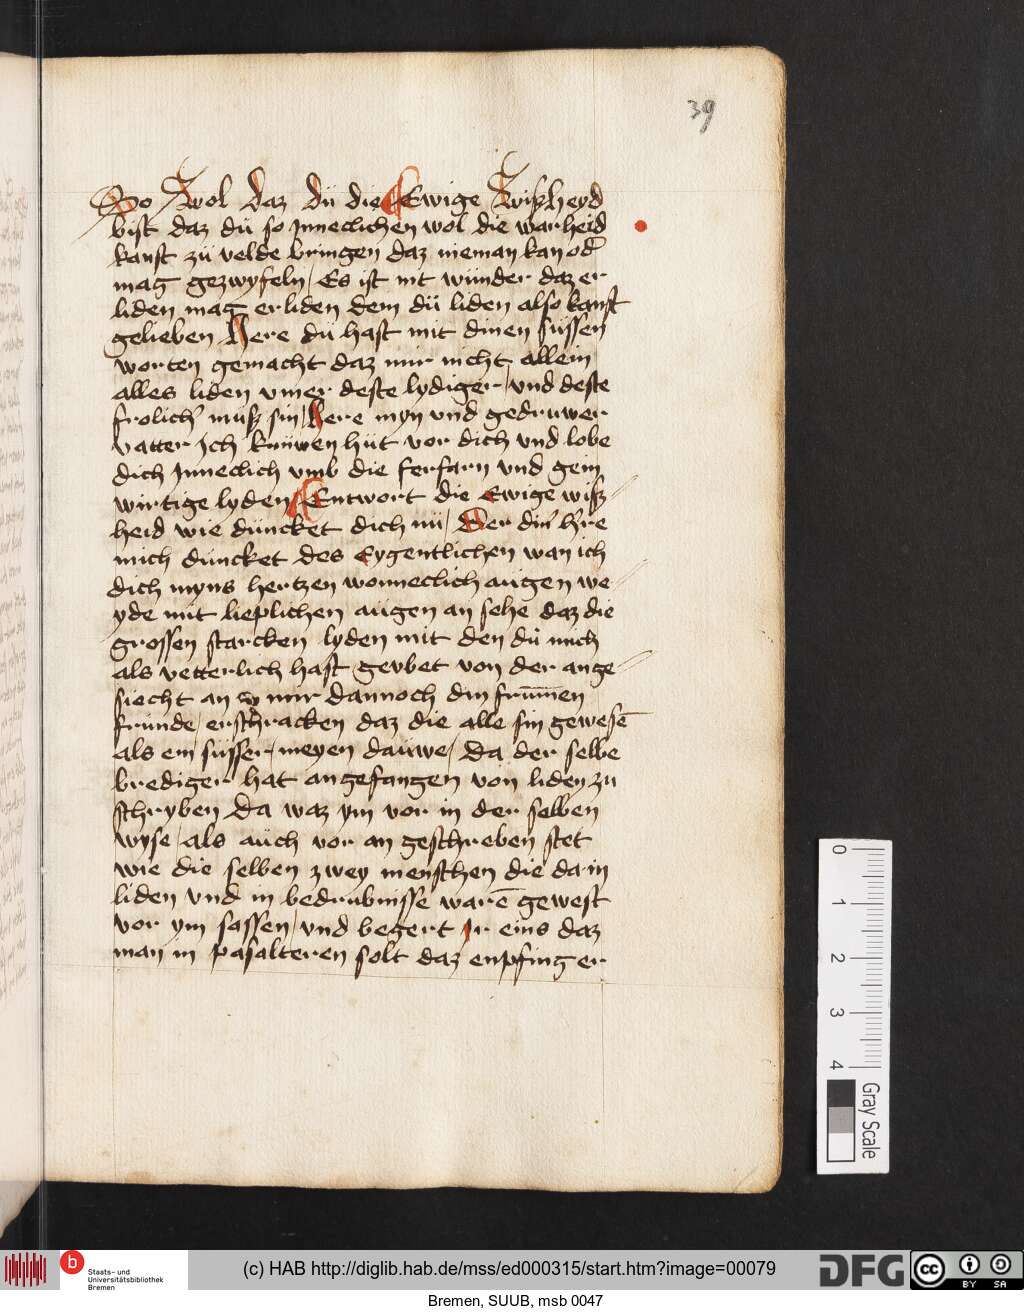 39
So wol daz dü die Ewige wißheyd
bist daz dü so Inneclichen wol die warheid
kanst zü velde bringen daz nieman kan od'
mag gezwyfeln / Es ist nit wünder daz er
liden mag erliden dem dü liden also kanst
gelieben Here dü hast mit dinen süssen
worten gemacht daz mir nicht allein
alles liden vmer deste lydiger / vnd deste
frolich' müß sin / here myn vnd gedruwer
vatter Ich knüwen hüt vor dich vnd lobe
dich Inneclich vmb die ferfarn vnd gein
wirtige lyden Entwort die Ewige wiß//
heid wie düncket dich nü / Der din' h're
mich düncket des Eygentlichen wan ich
dich myns hertzen wonneclich aügen we//
yde mit lieplichen aügen an sehe daz die
grossen starcken lyden mit den dü mich
als vetterlich hast gevbet von der ange//
siecht an mir dannoch din frümēn
fründe / erschracken daz die alle sin gewesē
als ein süsser / meyen daüwe / Da der selbe
brediger hat angefangen von liden zü
schryben Da waz ym vor in der selben
wyse / als aüch vor an geschreben stet
wie die selben zwey menschen die da in
liden vnd in bedrubnisse warē gewest
vor ym sassen / vnd begert Ir eins daz
man in pasalteren solt daz enpfing er
0
1
2
3
4
Gray Scale
b
Staats- und
Universitätsbibliothek
Bremen
(c) HAB http://diglib.hab.de/mss/ed000315/start.htm?image=00079
DFG
cc
BY
SA
Bremen, SUUB, msb 0047